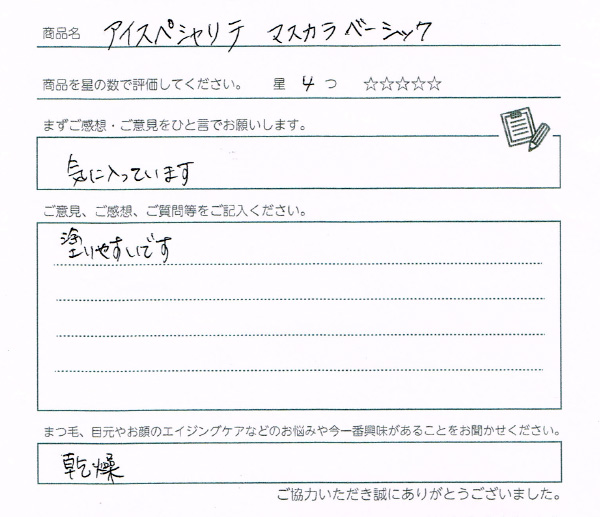 商品名 アイスペシャリテ マスカラベーシック
商品を星の数で評価してください。 星 4 つ ☆☆☆☆☆
まずご感想・ご意見をひと言でお願いします。
気に入っています
ご意見、ご感想、ご質問等をご記入ください。
塗りやすいです
まつ毛、目元やお顔のエイジングケアなどのお悩みや今一番興味があることをお聞かせください。
乾燥
ご協力いただき誠にありがとうございました。